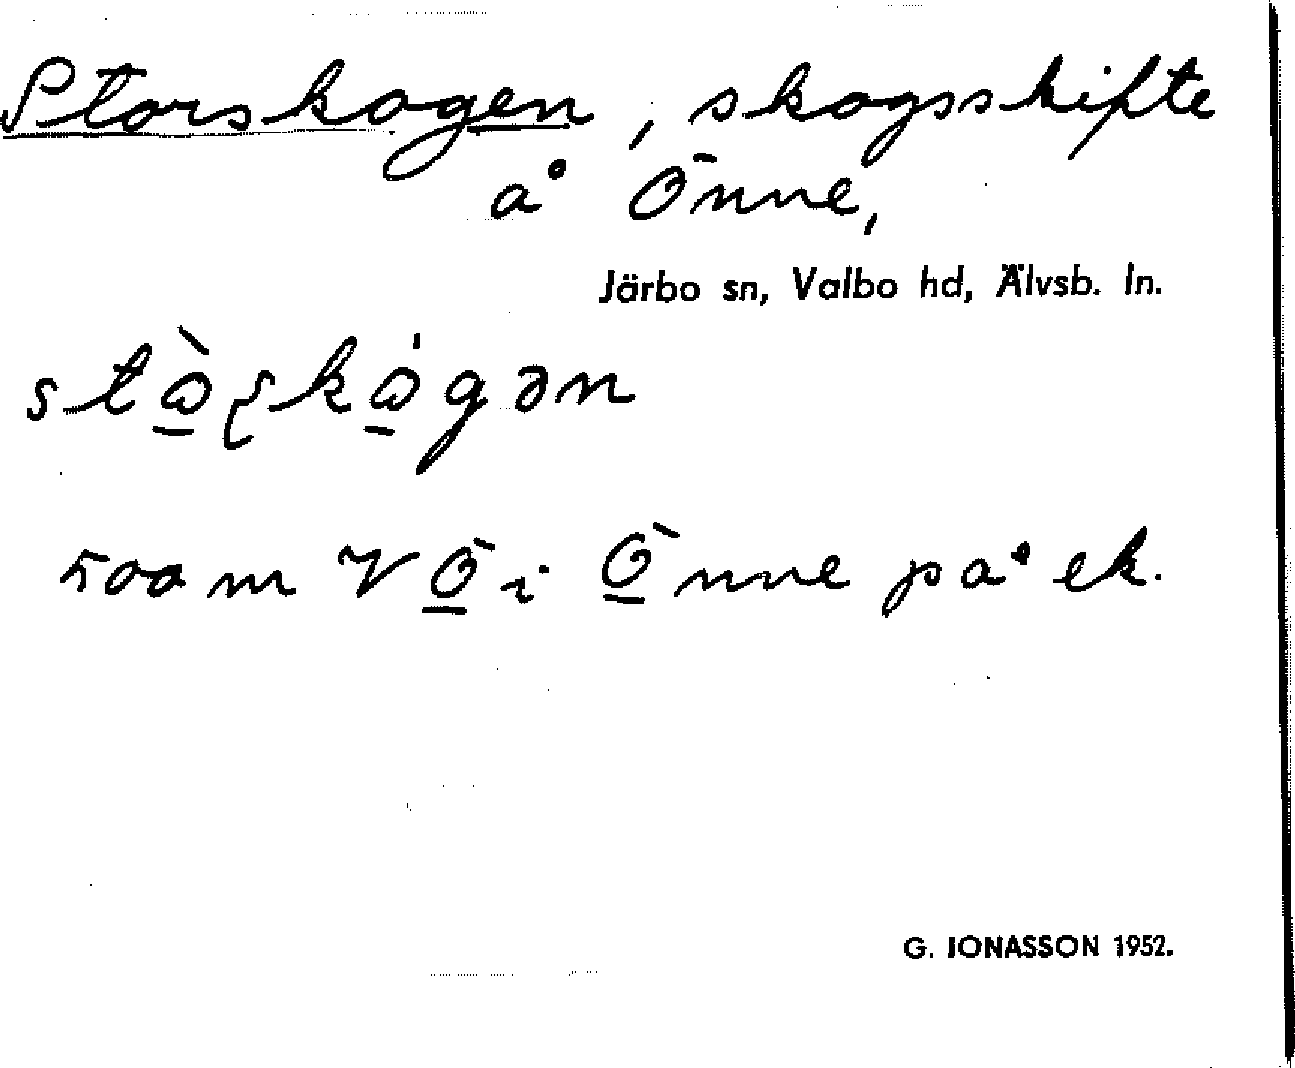 Storskogen, skogsskifte
å Önne,
Järbo sn, Valbo hd, Älvsb. ln.
500 m V Ö i Önne på ek.
G. JONASSON 1952.